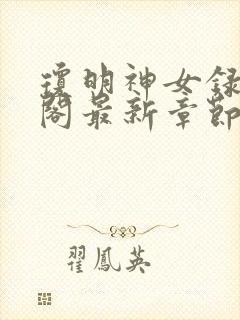 瓊明神女録
閣最新章節
翟鳳英